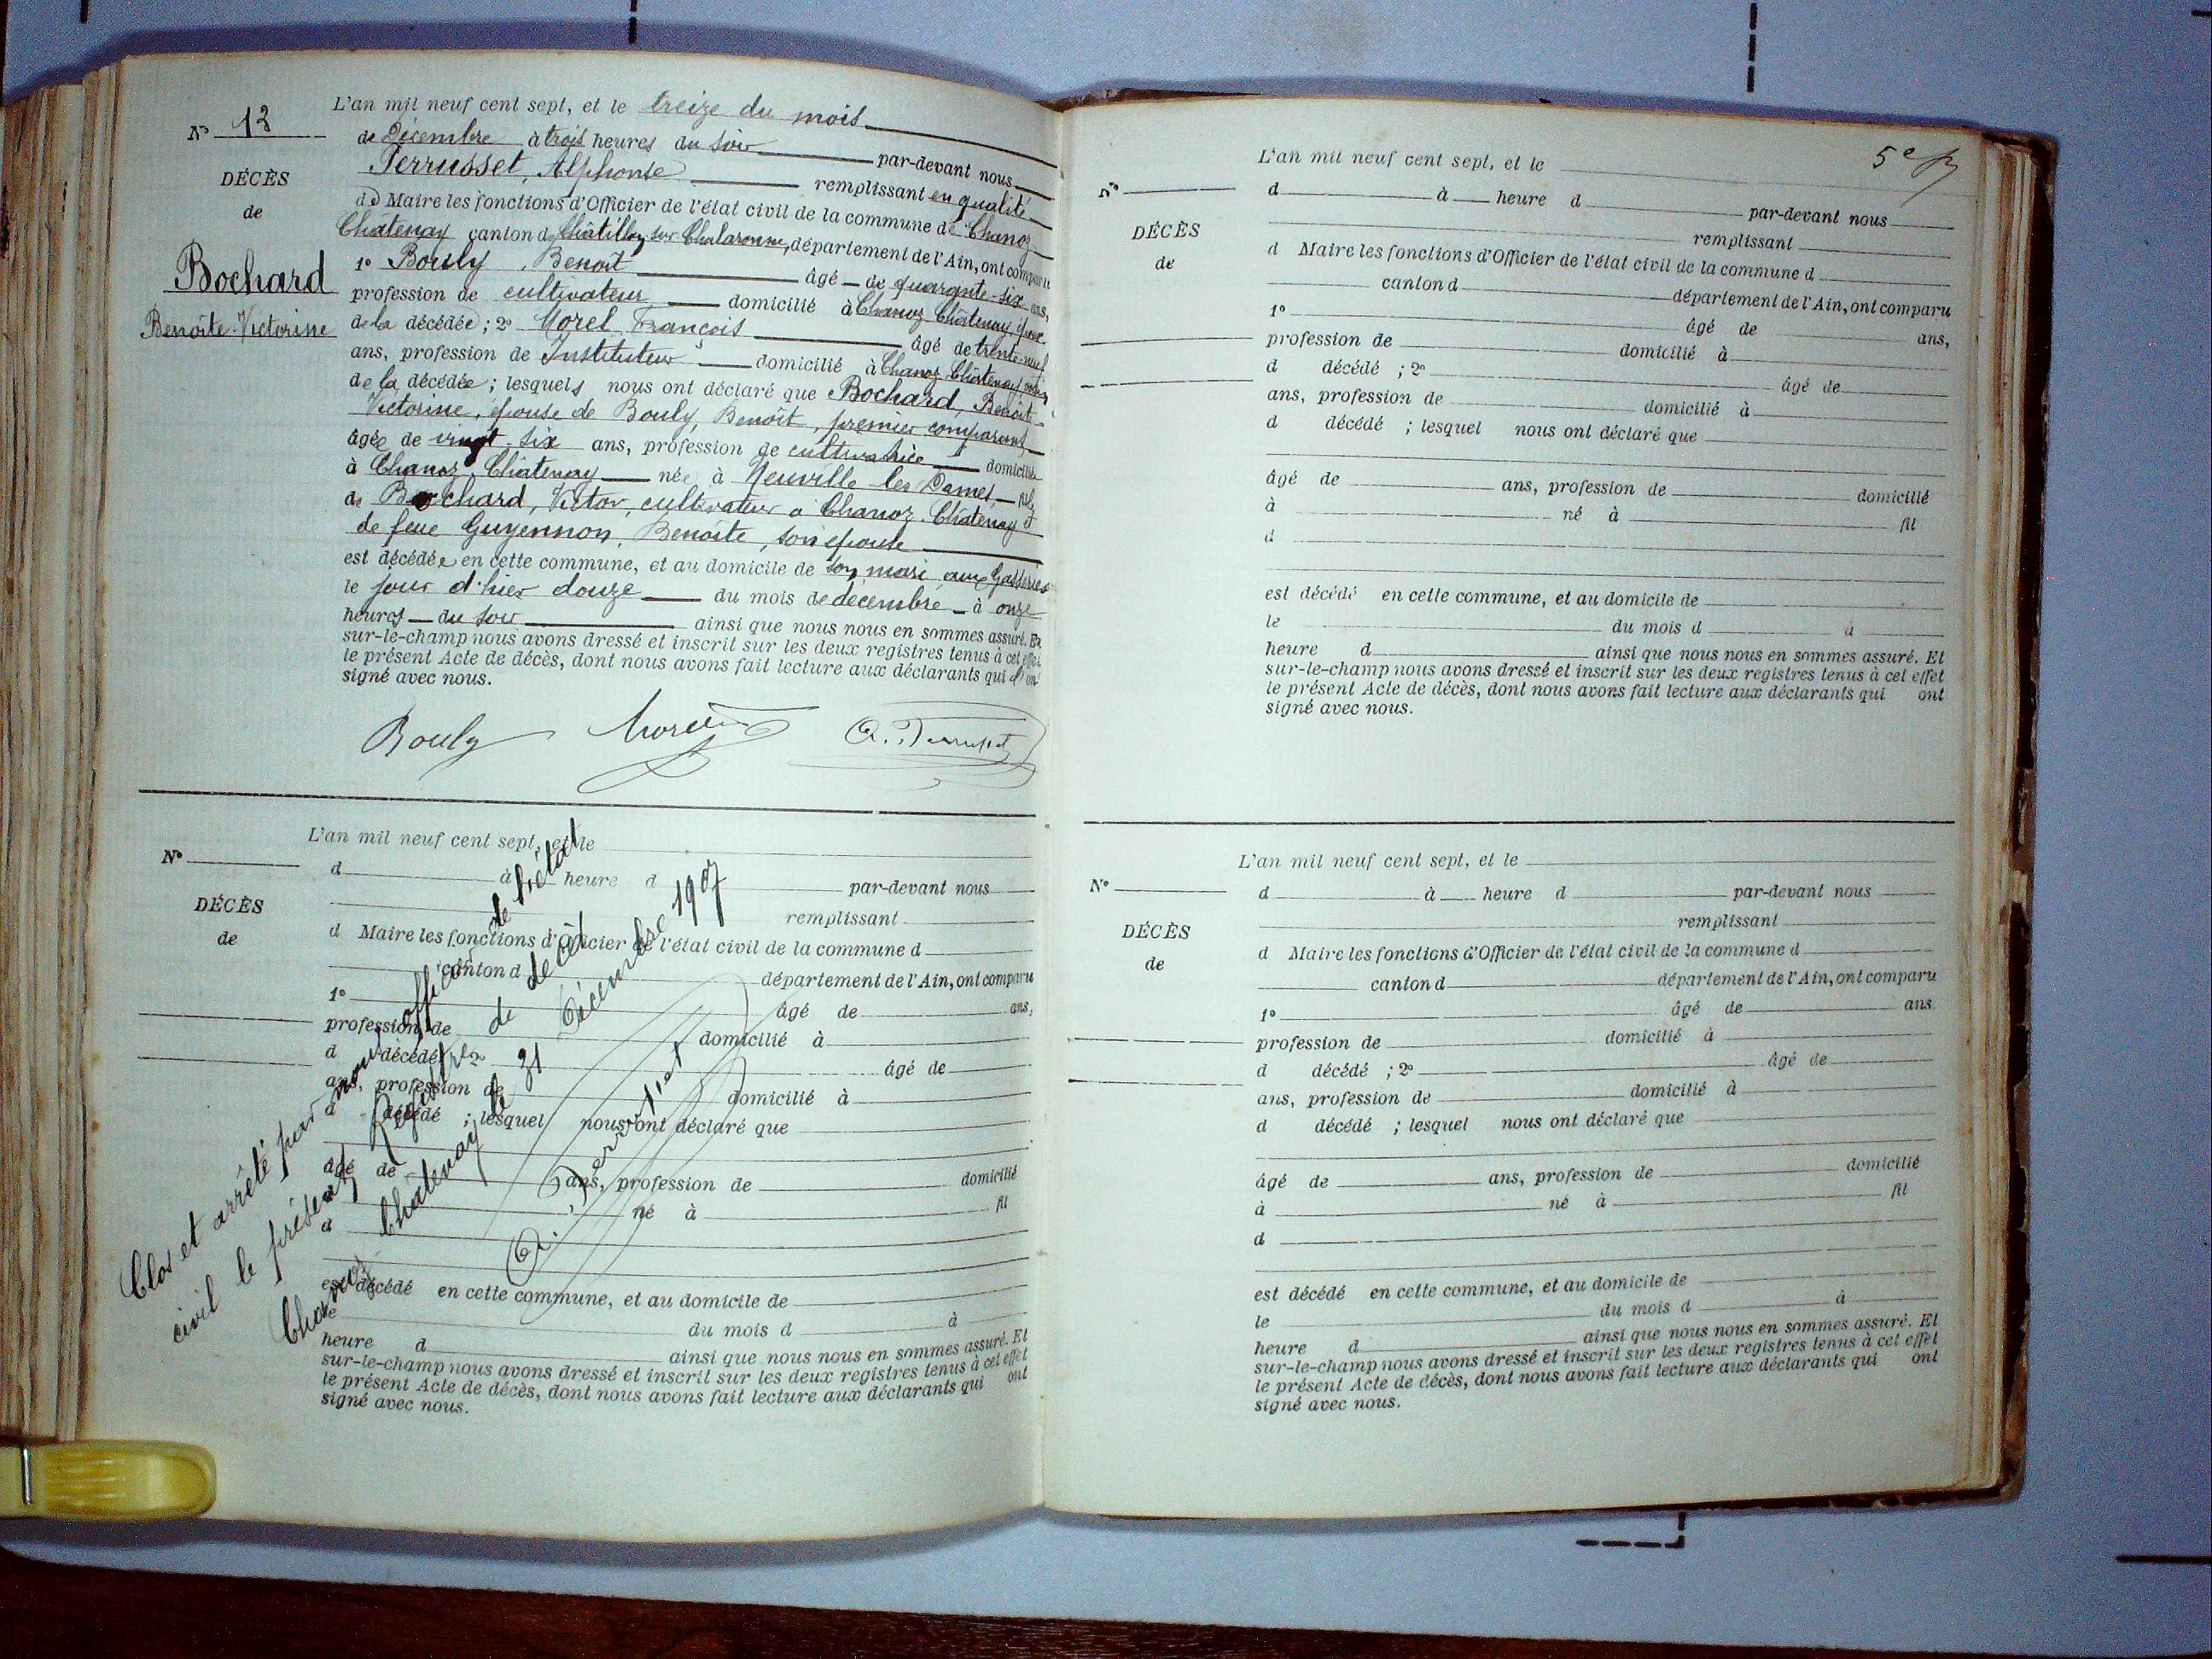 N° 13
DÉCÈS
de
Bochard
Benoîte-Victorine
L'an mil neuf cent sept, et le treize du mois
de Décembre à trois heures du soir par-devant nous
Terrusset, Alphonse remplissant en qualité
de Maire les fonctions d'Officier de l'état civil de la commune de Chanoz-
Châtenay canton de Châtillon sur Chalaronne, département de l'Ain, ont comparu
1° Bouly, Benoît âgé de quarante-six ans,
profession de cultivateur domicilié à Chanoz Châtenay, époux
de la décédée; 2° Morel, François âgé de trente-neuf
ans, profession de Instituteur domicilié à Chanoz Châtenay, voisin
de la décédée; lesquels nous ont déclaré que Bochard, Benoît-
Victorine, épouse de Bouly, Benoît, premier comparant
âgée de vingt-six ans, profession de cultivatrice domicilié
à Chanoz-Châtenay née à Neuville les Dames fille
de Bochard, Victor, cultivateur à Chanoz-Châtenay et
de feue Guyennon, Benoîte, son épouse
est décédée en cette commune, et au domicile de son mari, aux Gasseries
le jour d'hier douze du mois de décembre à onze
heures du soir ainsi que nous nous en sommes assuré. Et
sur-le-champ nous avons dressé et inscrit sur les deux registres tenus à cet effet
le présent Acte de décès, dont nous avons fait lecture aux déclarants qui ont
signé avec nous.
Bouly Morel A. Terrusset
N°
DÉCÈS
de
L'an mil neuf cent sept, et le
d à heure d par-devant nous
remplissant
d Maire les fonctions d'Officier de l'état civil de la commune d
canton d département de l'Ain, ont comparu
1° âgé de ans,
profession de domicilié à
d décédé ; 2° âgé de
ans, profession de domicilié à
d décédé ; lesquel nous ont déclaré que
âgé de ans, profession de domicilié
à né à fil
d
est décédé en cette commune, et au domicile de
le du mois d à
heure d ainsi que nous nous en sommes assuré. Et
sur-le-champ nous avons dressé et inscrit sur les deux registres tenus à cet effet
le présent Acte de décès, dont nous avons fait lecture aux déclarants qui ont
signé avec nous.
Clos et arrêté par nous officier de l'état
civil le présent Registre de décès
Chanoz Châtenay le 31 Décembre 1907
A. Terrusset
5e
N°
DÉCÈS
de
L'an mil neuf cent sept, et le
d à heure d par-devant nous
remplissant
d Maire les fonctions d'Officier de l'état civil de la commune d
canton d département de l'Ain, ont comparu
1° âgé de ans,
profession de domicilié à
d décédé ; 2° âgé de
ans, profession de domicilié à
d décédé ; lesquel nous ont déclaré que
âgé de ans, profession de domicilié
à né à fil
d
est décédé en cette commune, et au domicile de
le du mois d à
heure d ainsi que nous nous en sommes assuré. Et
sur-le-champ nous avons dressé et inscrit sur les deux registres tenus à cet effet
le présent Acte de décès, dont nous avons fait lecture aux déclarants qui ont
signé avec nous.
N°
DÉCÈS
de
L'an mil neuf cent sept, et le
d à heure d par-devant nous
remplissant
d Maire les fonctions d'Officier de l'état civil de la commune d
canton d département de l'Ain, ont comparu
1° âgé de ans
profession de domicilié à
d décédé ; 2° âgé de
ans, profession de domicilié à
d décédé ; lesquel nous ont déclaré que
âgé de ans, profession de domicilié
à né à fil
d
est décédé en cette commune, et au domicile de
le du mois d à
heure d ainsi que nous nous en sommes assuré. Et
sur-le-champ nous avons dressé et inscrit sur les deux registres tenus à cet effet
le présent Acte de décès, dont nous avons fait lecture aux déclarants qui ont
signé avec nous.